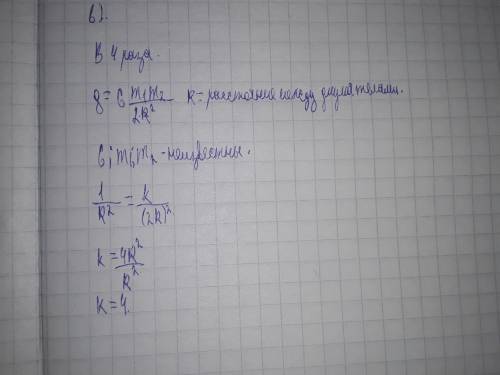 6).
В 4 раза.
g = G m₁m₂/2R² R = расстояние между двумя телами.
G; m₁; m₂ - неизвестны.
1/R² = k/(2R)²
k = 4R²/R²
k = 4.